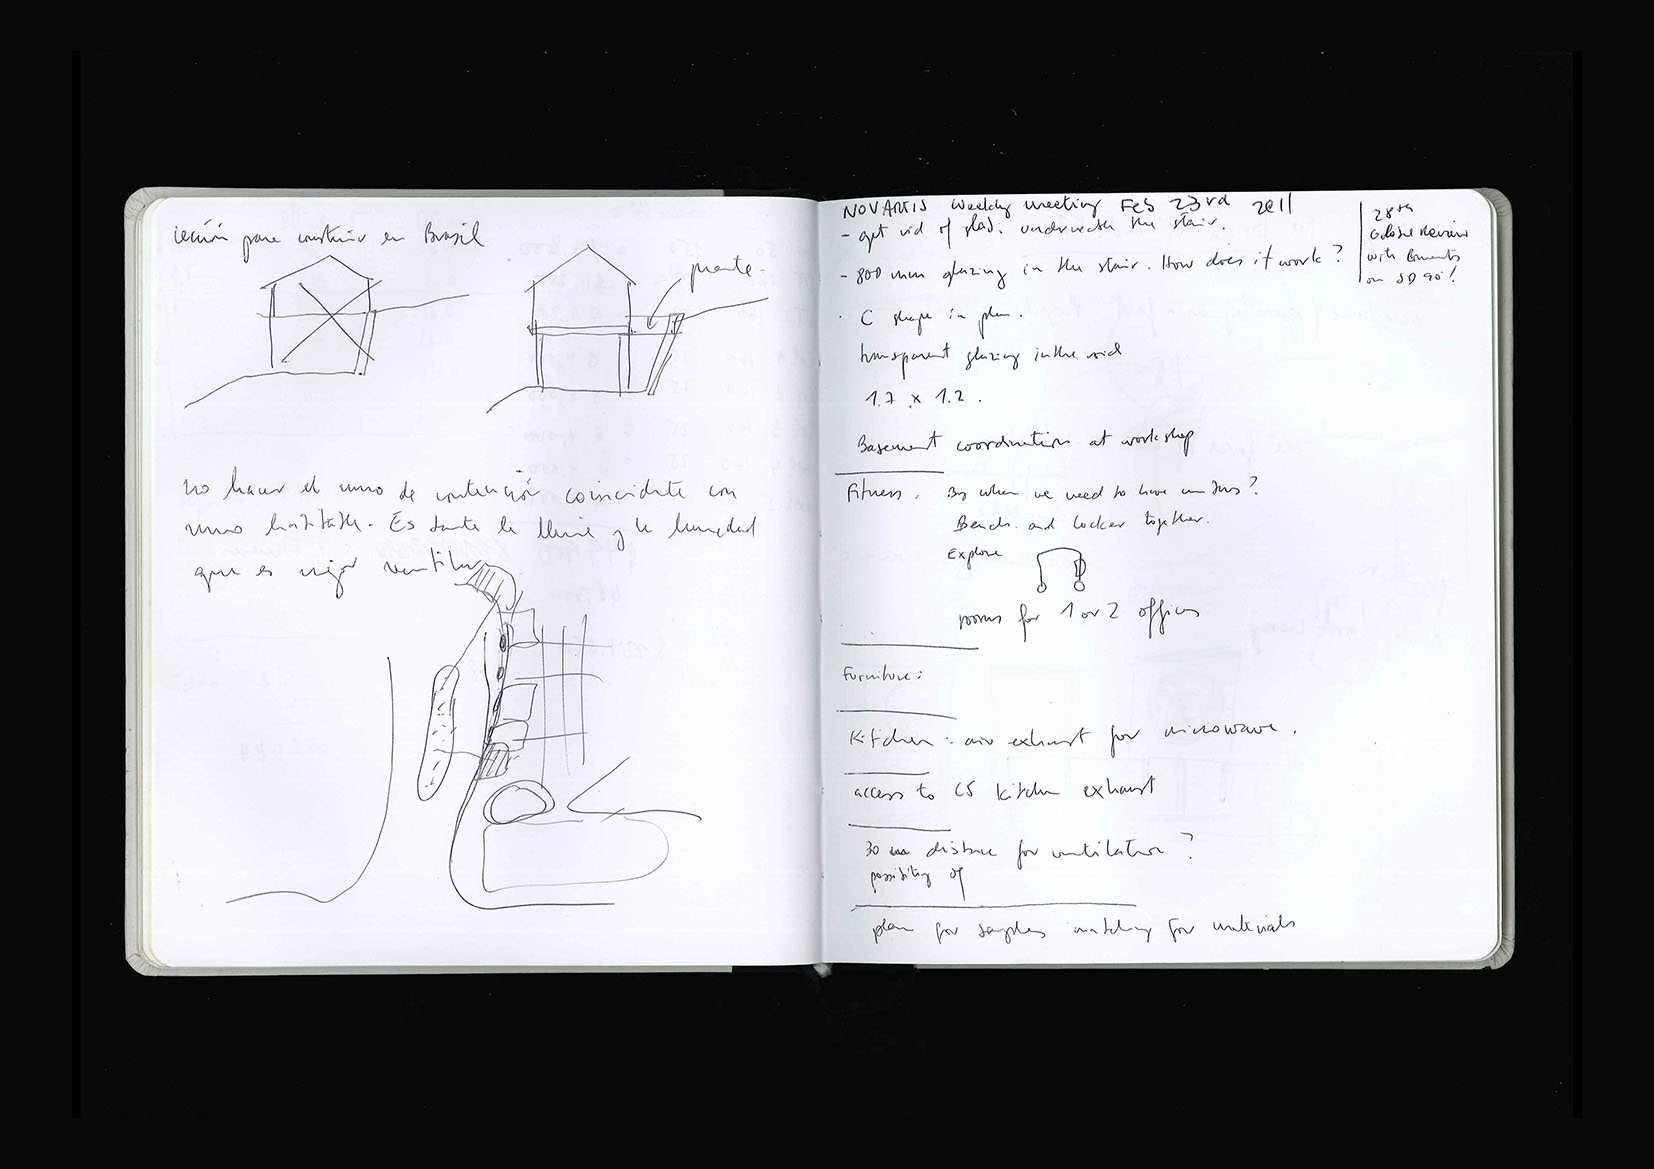 lección para construir en Brasil
puente.
no hacer el muro de contención coincidente con
muro habitable. Es tanta la lluvia y la humedad
que es mejor ventilar
NOVARTIS weekly meeting Feb 23rd 2011
- get rid of underneath the stair.
- 800 mm glazing in the stair. How does it work?
28th
Global Review
with Comments
on SD 90!
C shape in plan.
transparent glazing in the
1.7 x 1.2.
Basement coordination at workshop
Fitness. By when we need to have
Bench and locker together.
Explore
rooms for 1 or 2 offices
Furniture:
Kitchen: air exhaust for microwave.
access to CS kitchen exhaust
30 distance for ventilation?
possibility of
plan for samples matching for materials